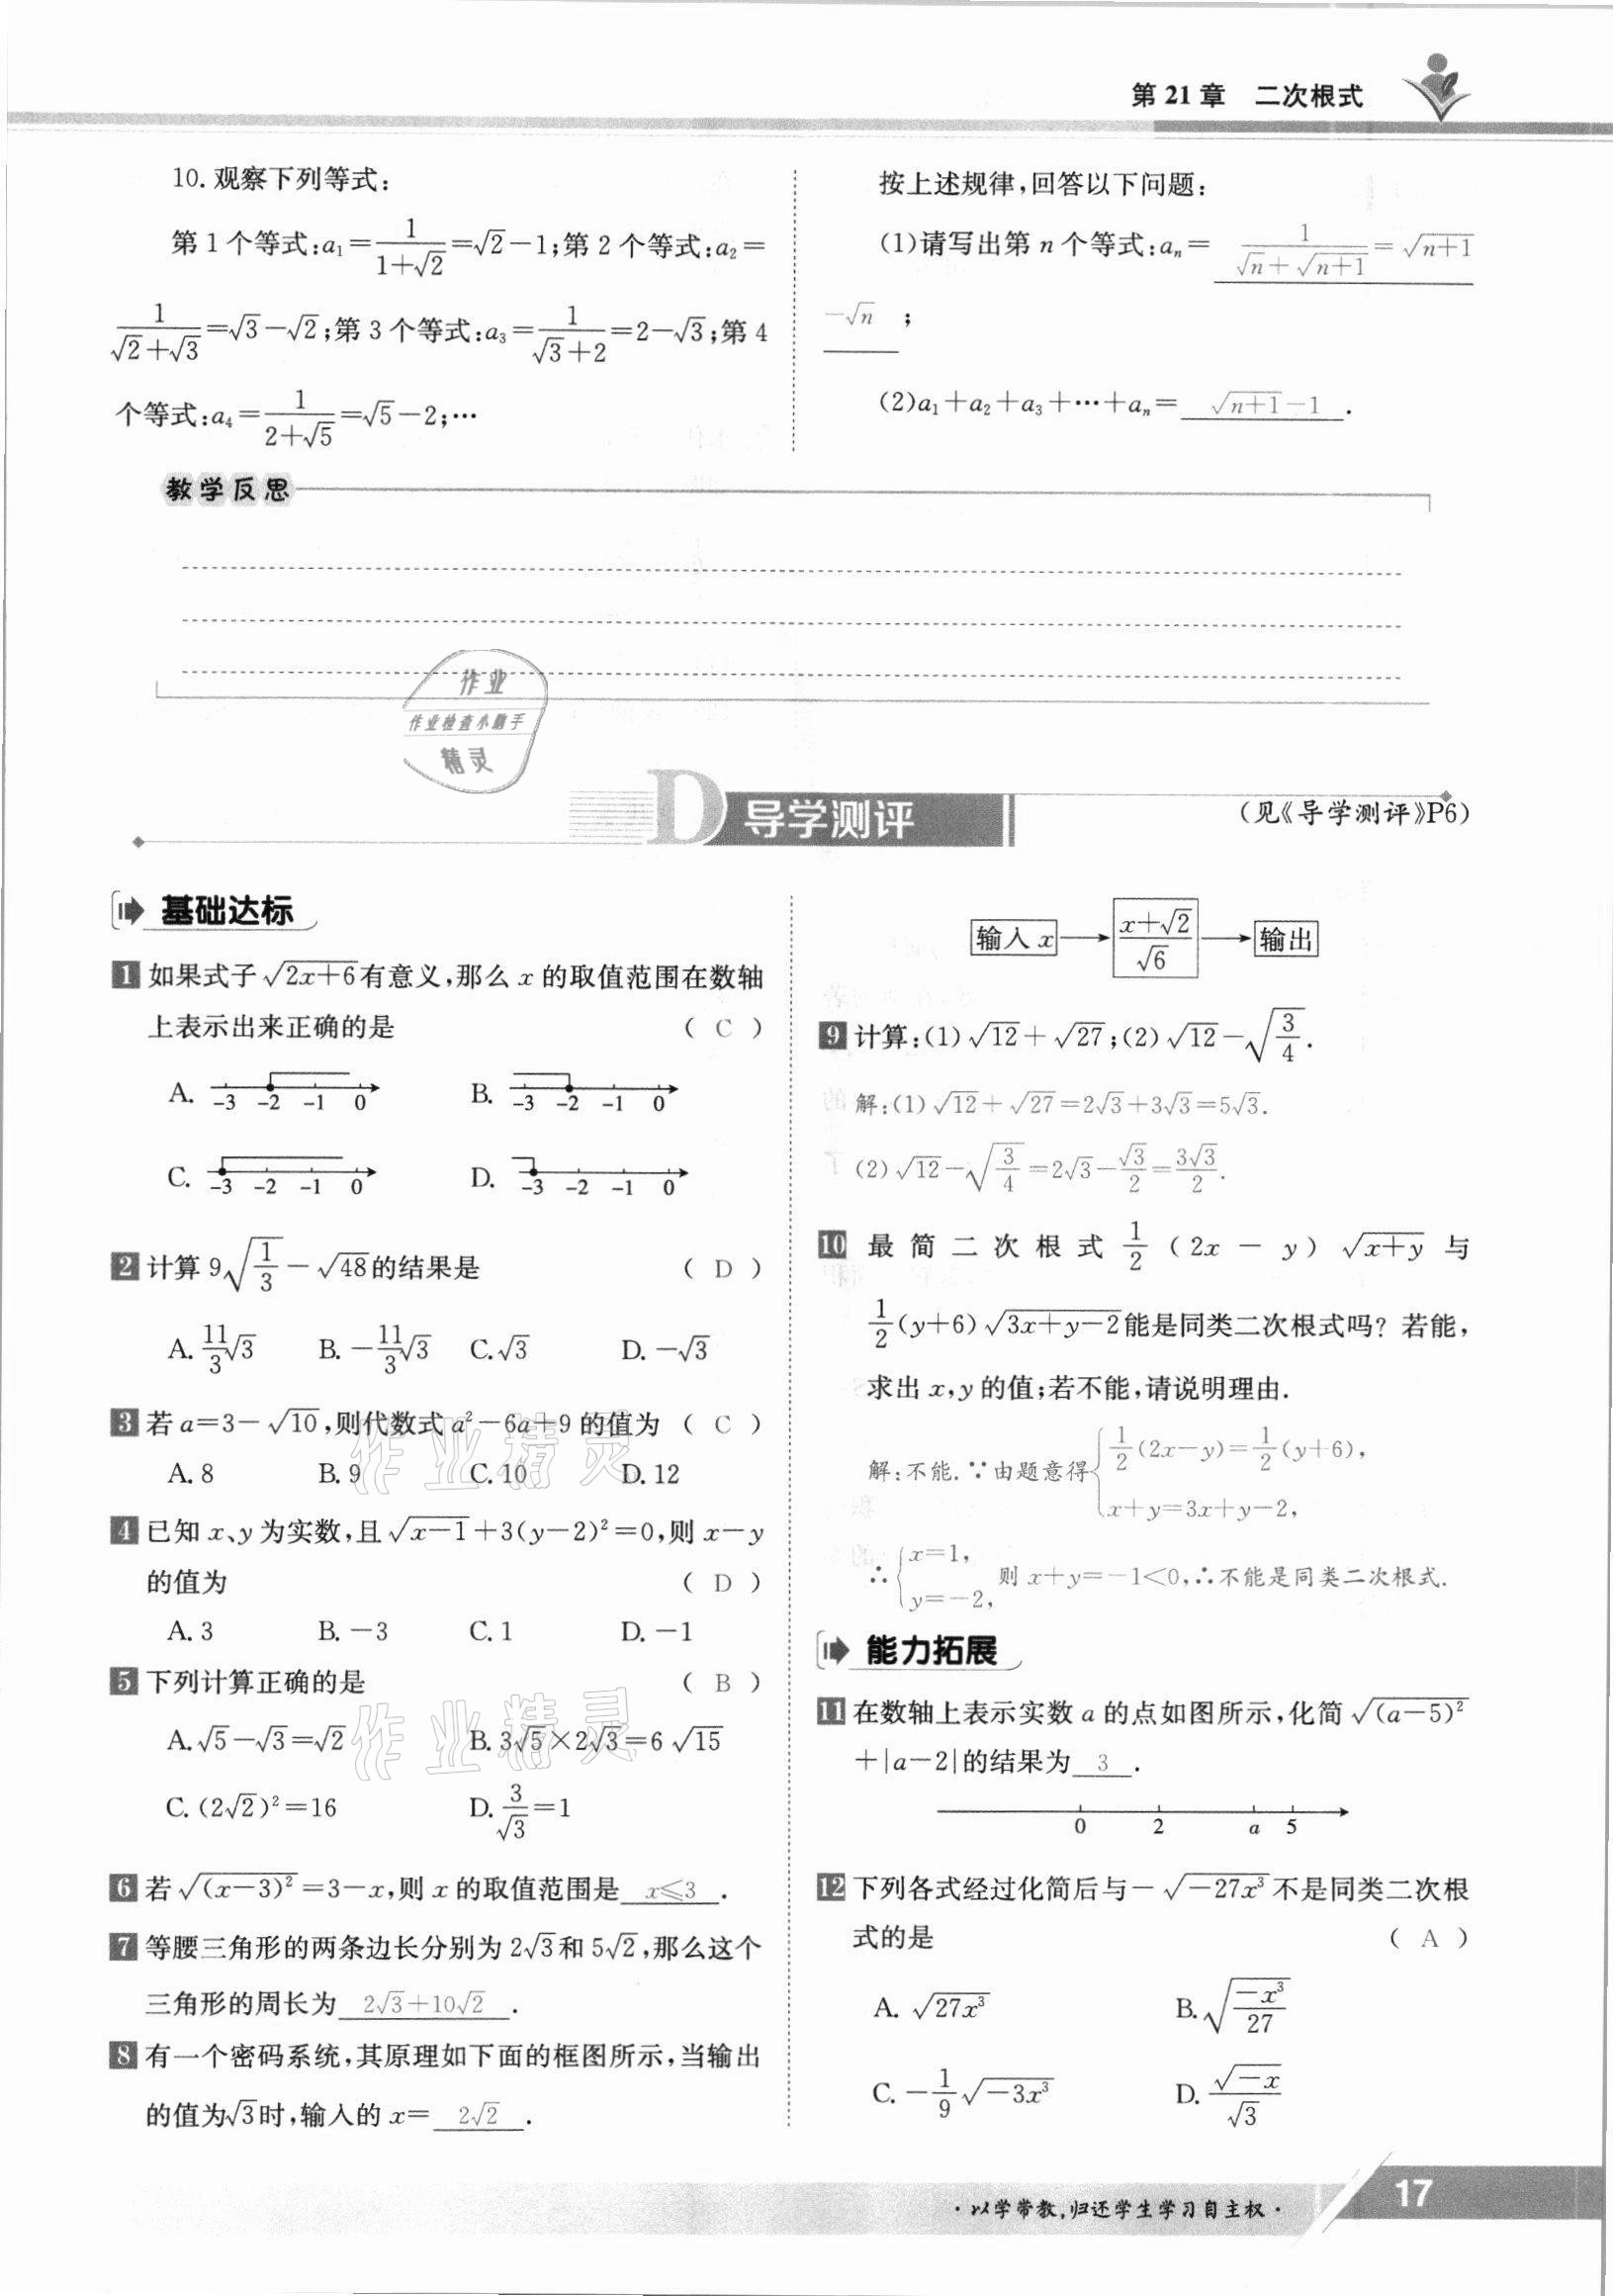 第21章 二次根式
10. 观察下列等式:
第1个等式:a₁=1/(1+√2)=√2-1;第2个等式:a₂=
1/(√2+√3)=√3-√2;第3个等式:a₃=1/(√3+2)=2-√3;第4
个等式:a₄=1/(2+√5)=√5-2;…
按上述规律,回答以下问题:
(1)请写出第n个等式:aₙ= 1/(√n+√(n+1))=√(n+1)
-√n ;
(2)a₁+a₂+a₃+…+aₙ= √(n+1)-1 .
教学反思
作业
作业检查小助手
精灵
D 导学测评
(见《导学测评》P6)
基础达标
1 如果式子√(2x+6)有意义,那么x的取值范围在数轴
上表示出来正确的是 ( C )
A. -3 -2 -1 0 B. -3 -2 -1 0
C. -3 -2 -1 0 D. -3 -2 -1 0
2 计算9√(1/3)-√48的结果是 ( D )
A. 11/3√3 B. -11/3√3 C. √3 D. -√3
3 若a=3-√10,则代数式a²-6a+9的值为 ( C )
A. 8 B. 9 C. 10 D. 12
4 已知x、y为实数,且√(x-1)+3(y-2)²=0,则x-y
的值为 ( D )
A. 3 B. -3 C. 1 D. -1
5 下列计算正确的是 ( B )
A. √5-√3=√2 B. 3√5×2√3=6√15
C. (2√2)²=16 D. 3/√3=1
6 若√((x-3)²)=3-x,则x的取值范围是 x≤3 .
7 等腰三角形的两条边长分别为2√3和5√2,那么这个
三角形的周长为 2√3+10√2 .
8 有一个密码系统,其原理如下面的框图所示,当输出
的值为√3时,输入的x= 2√2 .
输入x → (x+√2)/√6 → 输出
9 计算:(1)√12+√27;(2)√12-√(3/4).
解:(1)√12+√27=2√3+3√3=5√3.
(2)√12-√(3/4)=2√3-√3/2=3√3/2.
10 最简二次根式1/2(2x-y)√(x+y)与
1/2(y+6)√(3x+y-2)能是同类二次根式吗?若能,
求出x,y的值;若不能,请说明理由.
解:不能.∵由题意得{1/2(2x-y)=1/2(y+6),
x+y=3x+y-2,
∴{x=1,
y=-2, 则x+y=-1<0,∴不能是同类二次根式.
能力拓展
11 在数轴上表示实数a的点如图所示,化简√((a-5)²)
+|a-2|的结果为 3 .
0 2 a 5
12 下列各式经过化简后与-√(-27x³)不是同类二次根
式的是 ( A )
A. √(27x³) B. √(-x³/27)
C. -1/9√(-3x³) D. √(-x)/√3
作业精灵
作业精灵
·以学带教,归还学生学习自主权·
17